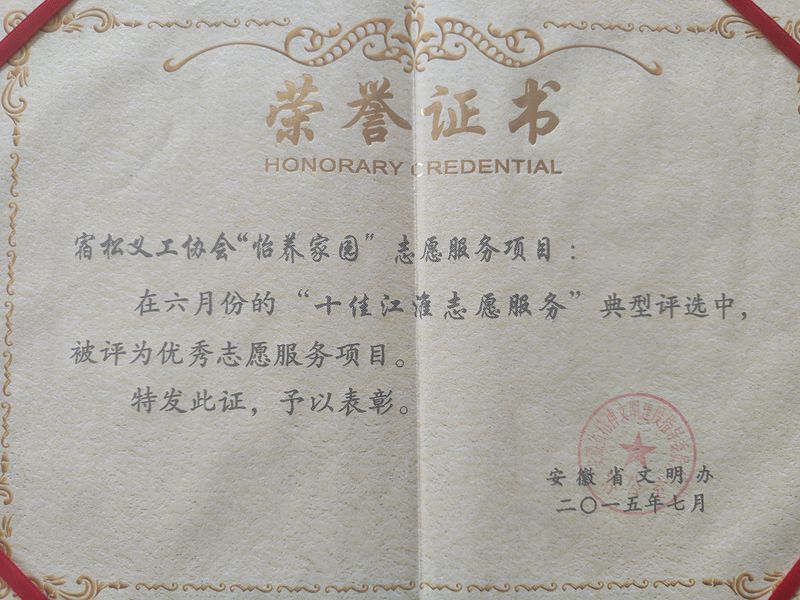 荣誉证书
HONORARY CREDENTIAL
宿松义工协会“怡养家园”志愿服务项目：
在六月份的“十佳江淮志愿服务”典型评选中，
被评为优秀志愿服务项目。
特发此证，予以表彰。
安徽省文明办
二〇一五年七月